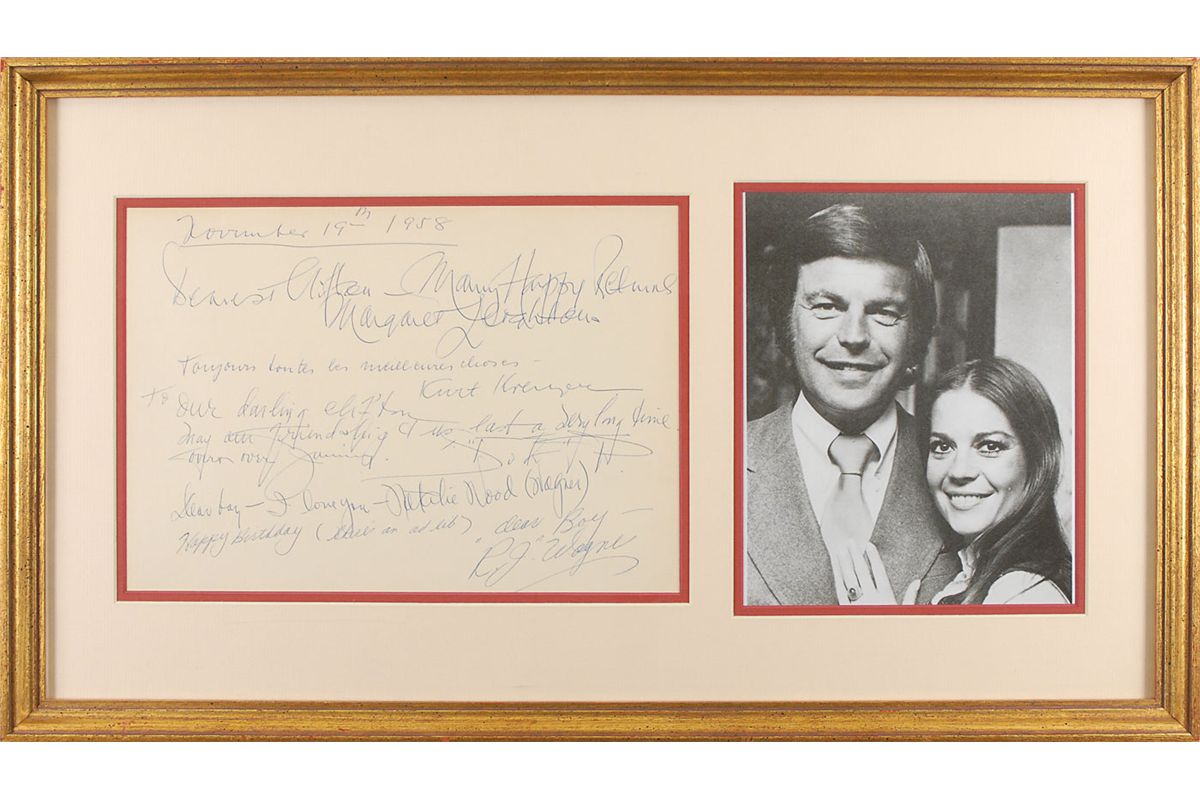 November 19th 1958
Dearest Clifton – Many Happy Returns
Margaret
Toujours toutes les meilleures choses –
Kurt
To Our darling clifton
may our friendship last a very long time
over over
Dear boy – I love you – Natalie Wood (Wagner)
Happy Birthday (there's an ad lib) dear Boy –
"R.J." Wagner